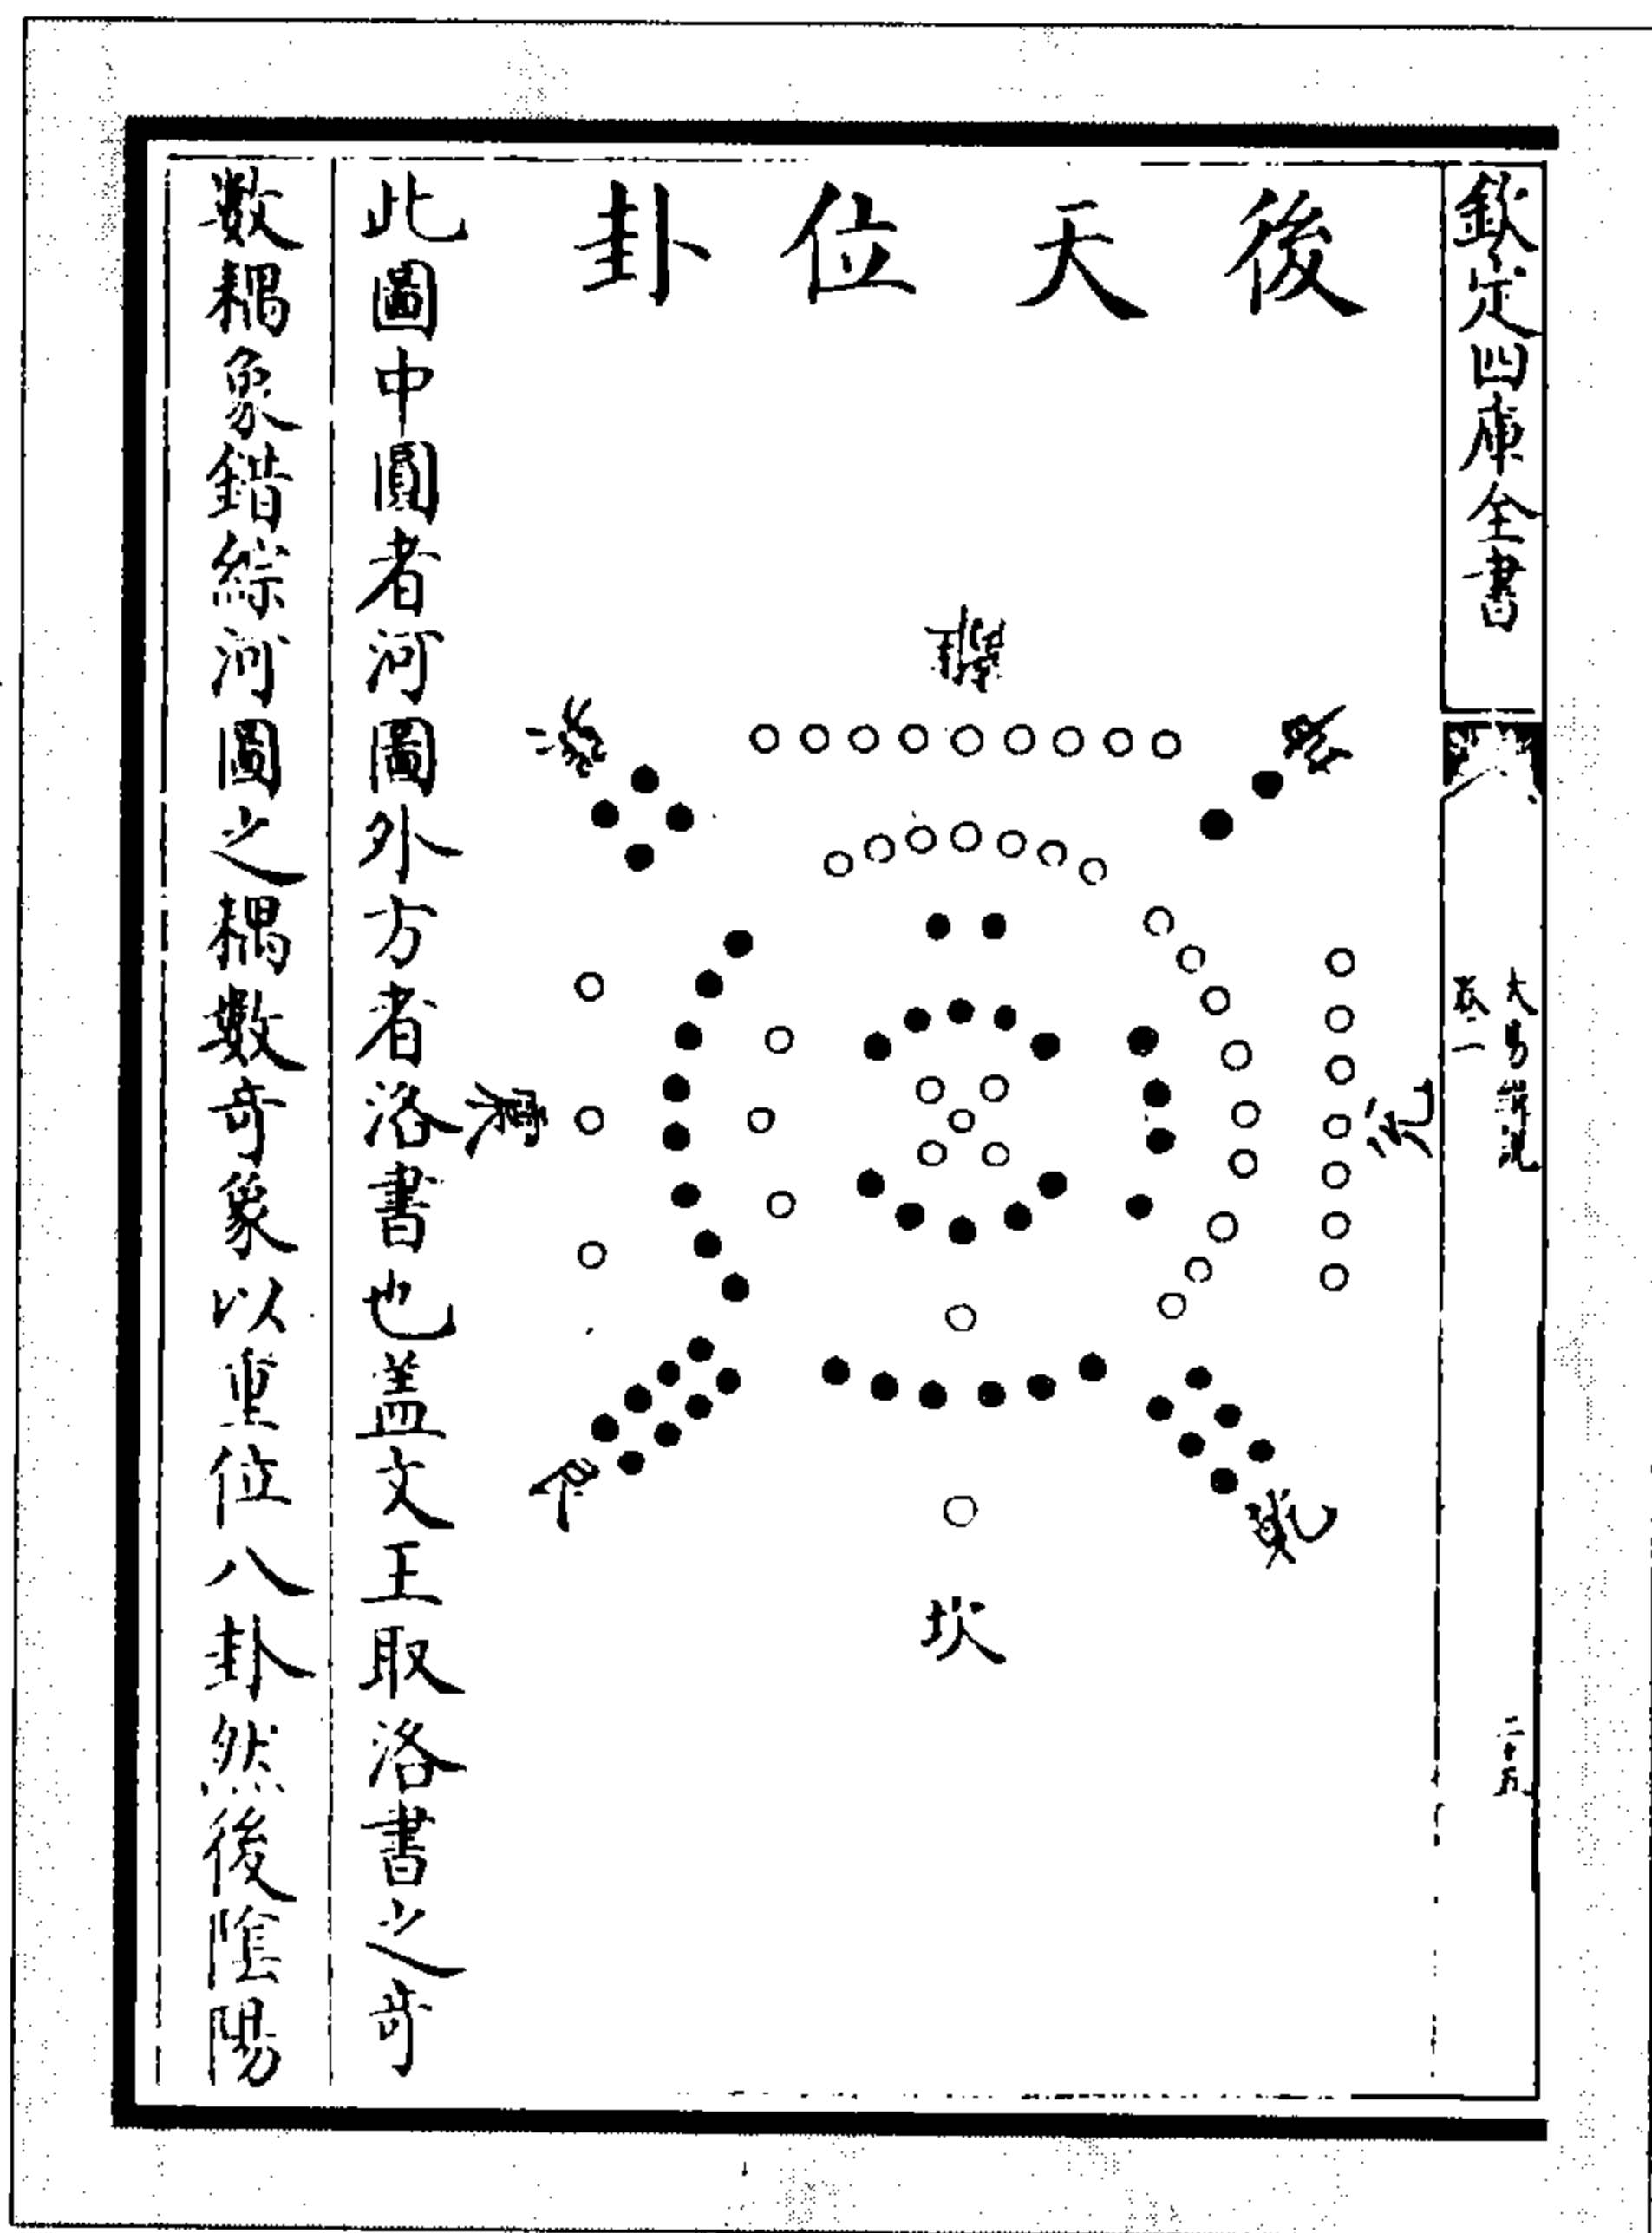 欽定四庫全書
大易緝說
卷二
二十五
後天位卦
離
坤
巽
兌
震
乾
艮
坎
此圖中圓者河圖外方者洛書也盖文王取洛書之奇
數耦象錯綜河圖之耦數奇象以重位八卦然後隂陽